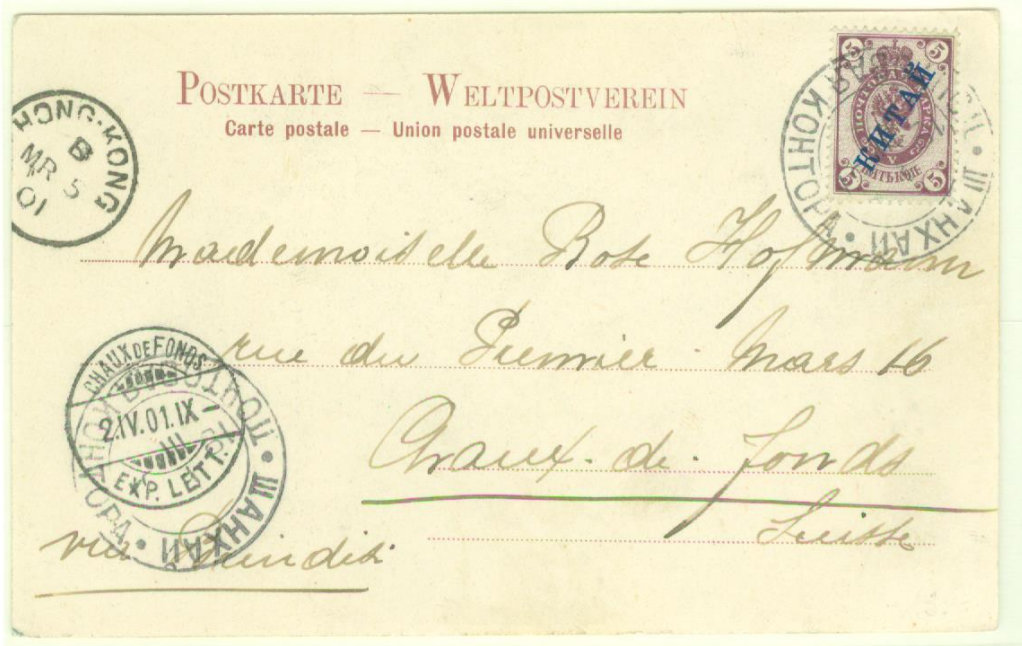 POSTKARTE — WELTPOSTVEREIN
Carte postale — Union postale universelle
HONG-KONG
B
MR 5
01
5 5
КИТАЙ
5 5
КОНТОРА • ШАНХАЙ •
Mademoiselle Rose Hofmann
rue du Premier Mars 16
Chaux-de-fonds
Suisse
CHAUX DE FONDS
2.IV.01.IX-
EXP. LETT.
ПОЧТОВАЯ КОНТОРА • ШАНХАЙ •
via Brindisi